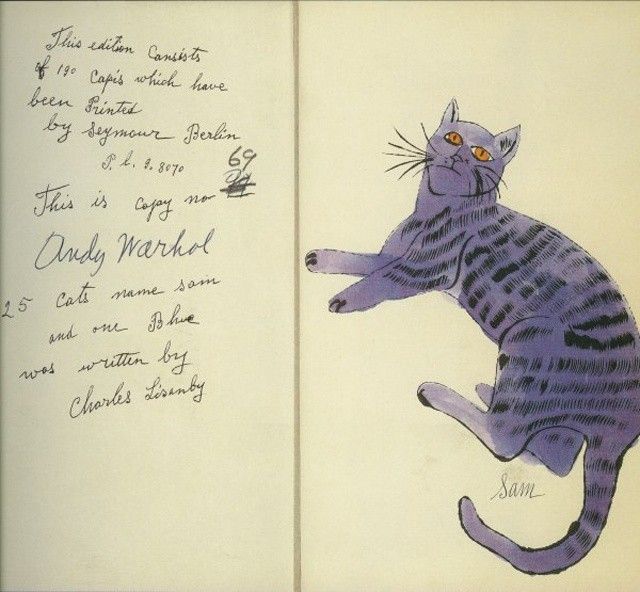 This edition Consists
of 190 Capis which have
been Printed
by Seymour Berlin
P. l. 9. 8070
69
This is copy no
Andy Warhol
25 Cats name sam
and one Blue
was written by
Charles Lisanby
Sam